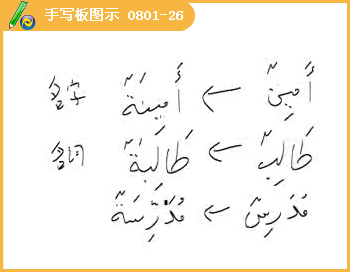 手写板图示 0801-26
أَمِينٌ ← أَمِينَةٌ 名字
طَالِبٌ ← طَالِبَةٌ 名词
مُدَرِسٌ ← مُدَرِّسَةٌ